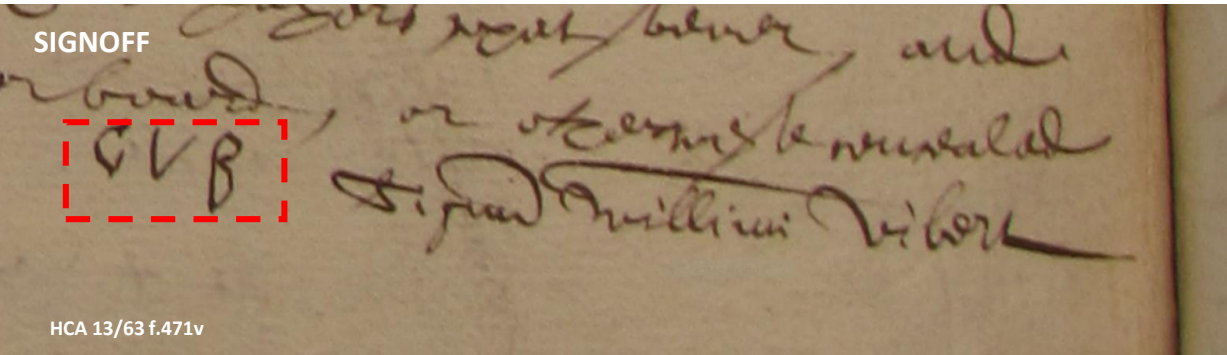 SIGNOFF
next before, and
board, or otherwyse concealed
C V B
Signum Willimi Vibert
HCA 13/63 f.471v